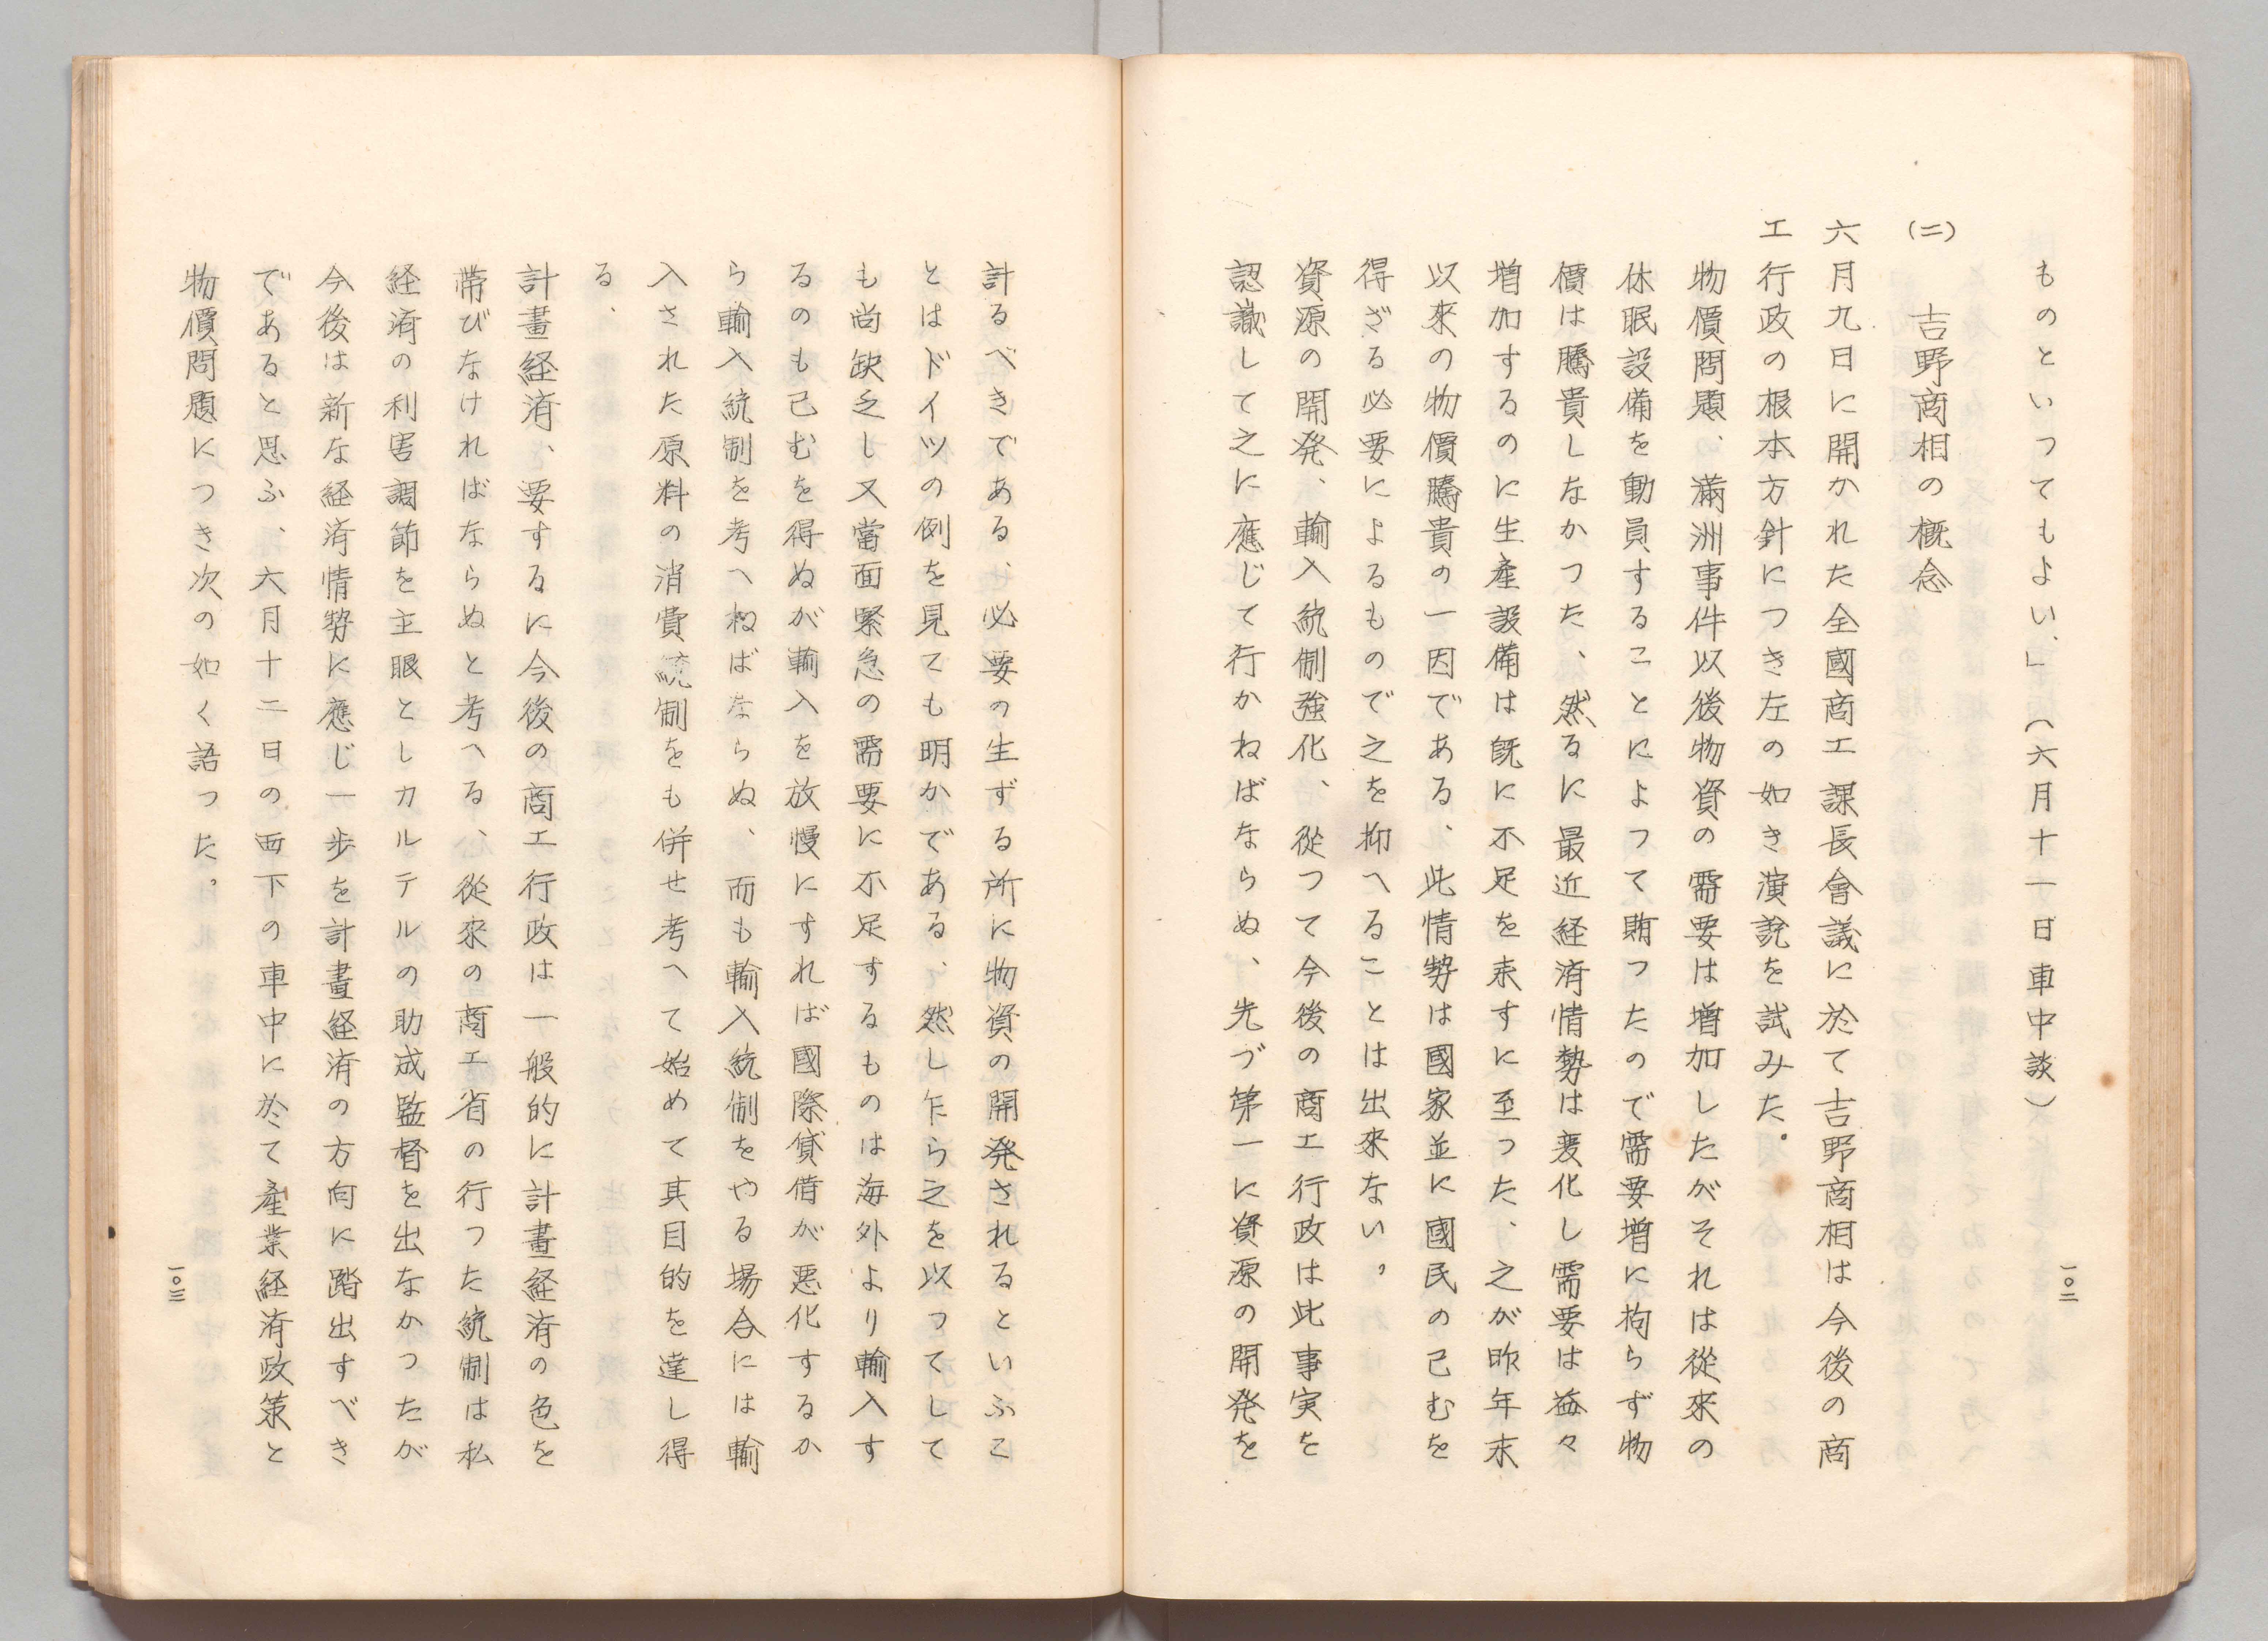 ものといつてもよい、」（六月十一日車中談）
(二)　吉野商相の概念
六月九日に開かれた全國商工課長會議に於て吉野商相は今後の商
工行政の根本方針につき左の如き演説を試みた。
物價問題、滿洲事件以後物資の需要は増加したがそれは從來の
休眠設備を動員することによつて賄つたので需要増に拘らず物
價は騰貴しなかつた、然るに最近経済情勢は変化し需要は益々
増加するのに生産設備は既に不足を来すに至つた、之が昨年末
以來の物價騰貴の一因である、此情勢は國家並に國民の已むを
得ざる必要によるもので之を抑へることは出來ない。
資源の開発、輸入統制強化、從つて今後の商工行政は此事実を
認識して之に應じて行かねばならぬ、先づ第一に資源の開発を
一〇二
計るべきである、必要の生ずる所に物資の開発されるといふこ
とはドイツの例を見ても明かである、然し乍ら之を以つてして
も尚缺乏し又當面緊急の需要に不足するものは海外より輸入す
るのも已むを得ぬが輸入を放慢にすれば國際貸借が悪化するか
ら輸入統制を考へねばならぬ、而も輸入統制をやる場合には輸
入された原料の消費統制をも併せ考へて始めて其目的を達し得
る、
計畫経済、要するに今後の商工行政は一般的に計畫経済の色を
帯びなければならぬと考へる、從來の商工省の行つた統制は私
経済の利害調節を主眼としカルテルの助成監督を出なかつたが
今後は新な経済情勢に應じ一歩を計畫経済の方向に踏出すべき
であると思ふ、六月十二日の西下の車中に於て産業経済政策と
物價問題につき次の如く語つた。
一〇三